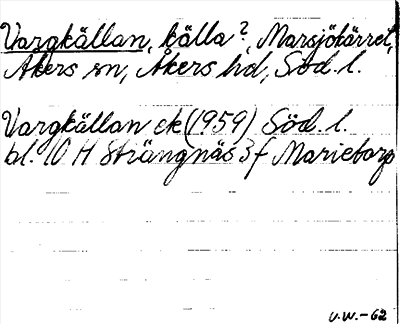 Vargkällan, källa?, Marsjökärret,
Åkers sn, Åkers hd, Söd. l.
Vargkällan ek (1959) Söd. l.
bl. 10 H Strängnäs 3 f Marietorp
U.W.-62